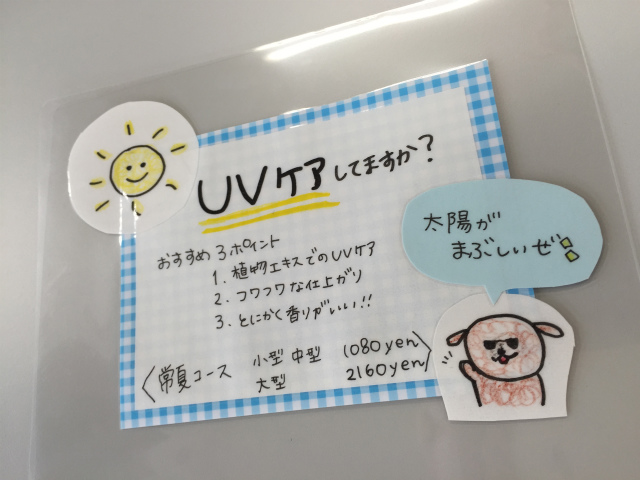 UVケアしてますか?
太陽が
まぶしいぜ!!
おすすめ3ポイント
1. 植物エキスでのUVケア
2. フワフワな仕上がり
3. とにかく香りがいい!!
〈常夏コース 小型 中型 1080yen〉
大型 2160yen